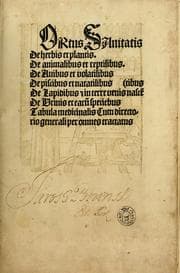 ORtus Sanitatis
De herbis et plantis.
De animalibus et reptilibus.
De Auibus et volatilibus
De piscibus et natatilibus (tibus
De Lapidibus et in terre venis nascē
De Vrinis et earū speciebus
Tabula medicinalis Cum directo-
rio generali per omnes tractatus